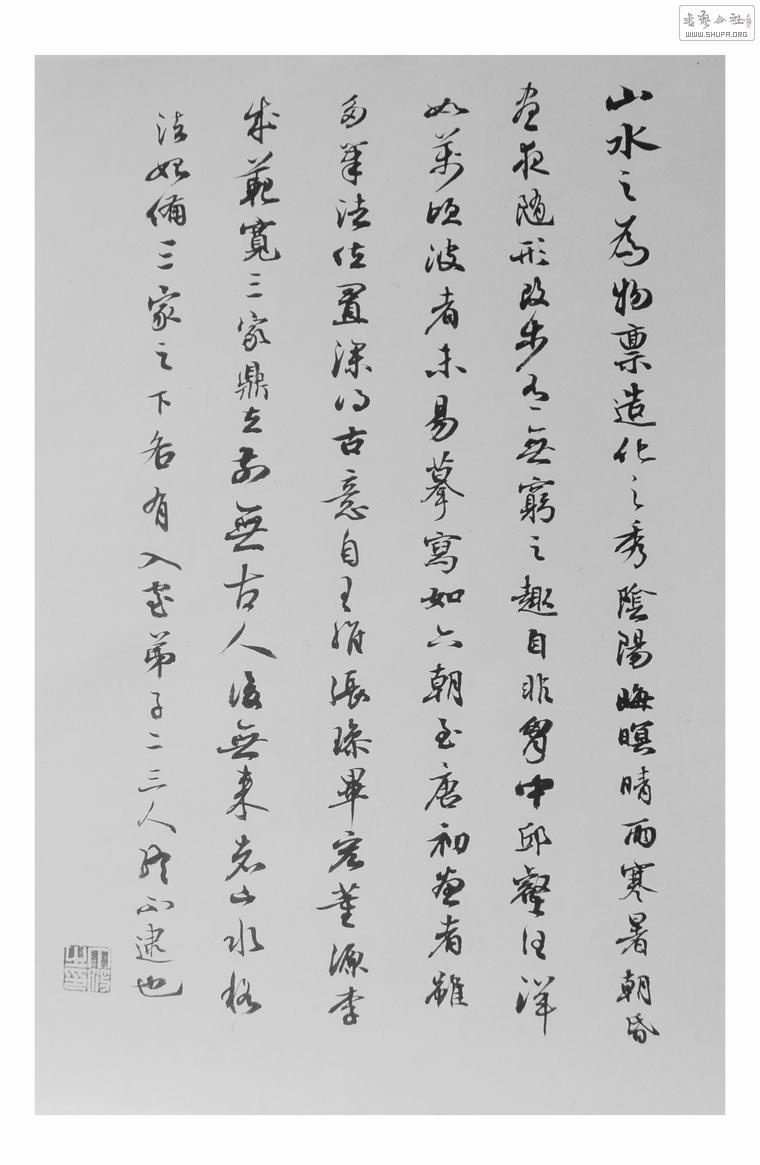 山水之為物稟造化之秀陰陽晦暝晴雨寒暑朝昏
晝夜随形改步有無窮之趣自非胷中邱壑汪洋
如萬頃波者未易摹寫如六朝至唐初畫者雖
多筆法位置深得古意自王維張璪畢宏董源李
成範寬三家鼎立前無古人後無來者山水格
法始備三家之下各有入室弟子二三人終不逮也
書藝公社
WWW.SHUFA.ORG